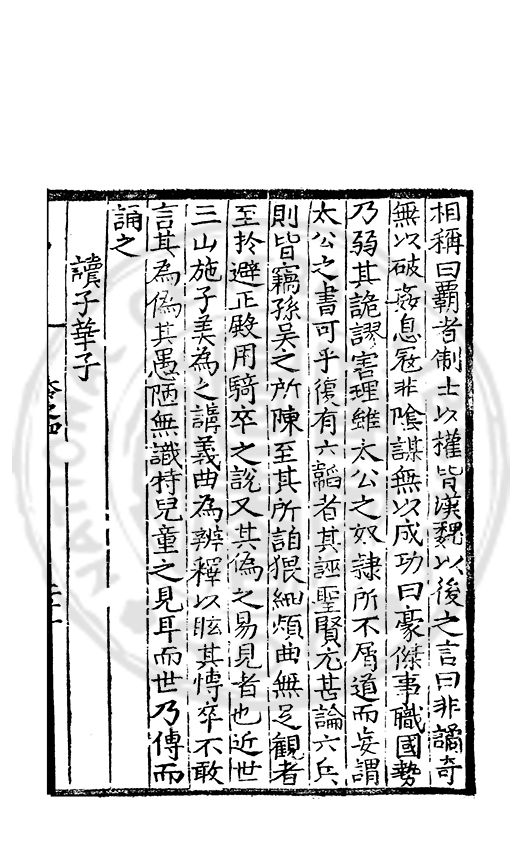 相稱曰霸者制士以權皆漢魏以後之言曰非譎奇
無以破姦息冦非陰謀無以成功曰豪傑事職國勢
乃弱其詭謬害理雖太公之奴隷所不屑道而妄謂
太公之書可乎復有六韜者其誣聖賢尤甚論六兵
則皆竊孫吳之所陳至其所詣猥細煩曲無足觀者
至扵避正殿用騎卒之說又其偽之易見者也近世
三山施子美為之講義曲為辨釋以眩其愽卒不敢
言其為偽其愚陋無識特兒童之見耳而世乃傳而
誦之
讀子華子
卷之四